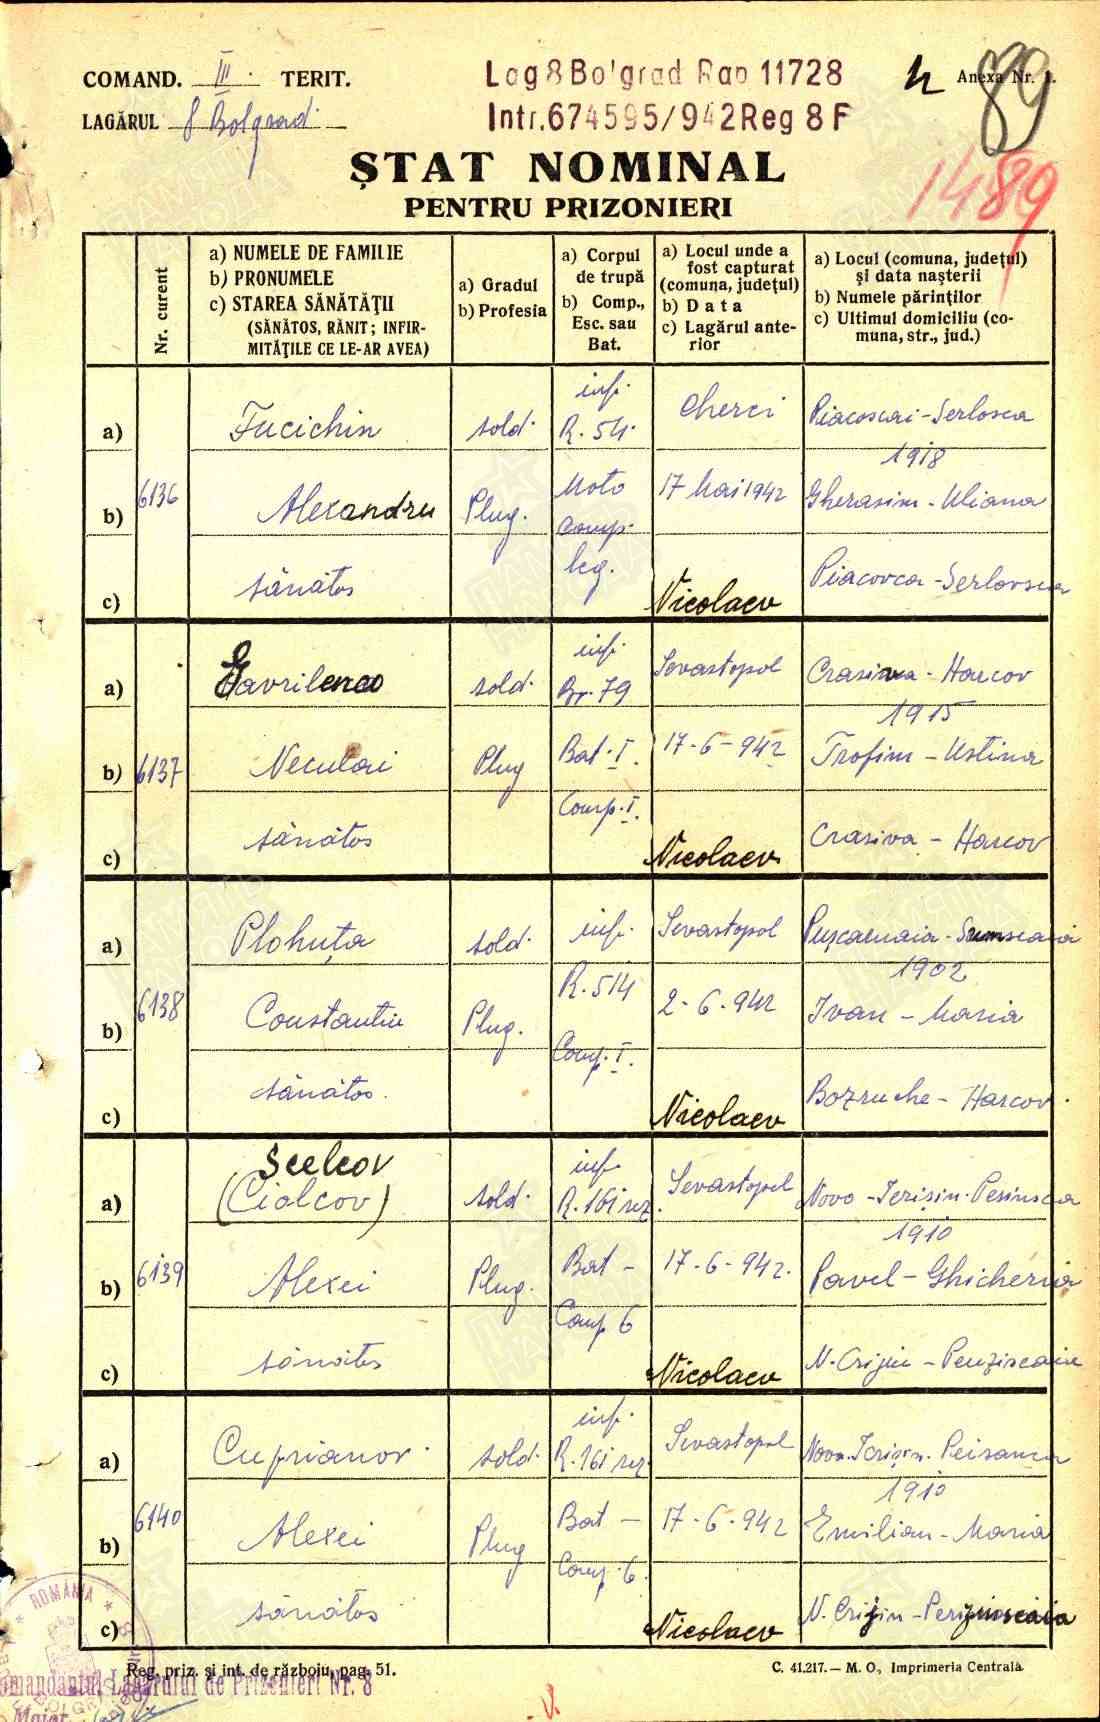 COMAND. III. TERIT.
LAGĂRUL 8 Bolgrad.
Lag 8 Bolgrad Rap 11728
Intr. 674595/942 Reg 8 F
Anexa Nr. 1.
89
1489
ȘTAT NOMINAL
PENTRU PRIZONIERI
Nr. curent
a) NUMELE DE FAMILIE
b) PRONUMELE
c) STAREA SĂNĂTĂȚII
(SĂNĂTOS, RĂNIT; INFIR-
MITĂȚILE CE LE-AR AVEA)
a) Gradul
b) Profesia
a) Corpul
de trupă
b) Comp.,
Esc. sau
Bat.
a) Locul unde a
fost capturat
(comuna, județul)
b) Data
c) Lagărul ante-
rior
a) Locul (comuna, județul)
și data nașterii
b) Numele părinților
c) Ultimul domiciliu (co-
muna, str., jud.)
6136
a) Fucichin sold. inf. R. 54. Cherci Piacoscai-Serlosca
1918
b) Alexandru Plug. Moto comp. 17 Mai 1942 Gherasim-Uliana
c) sănătos leg. Nicolaev Piacovca-Serlovsca
6137
a) Gavrilenco sold. inf. Br. 79 Sevastopol Crasiva - Harcov
1915
b) Neculai Plug Bat. I. 17-6-942 Trofim - Ustina
c) sănătos Comp. I. Nicolaev Crasiva - Harcov
6138
a) Plohuța sold. inf. Sevastopol Pușcarnaia-Sumscaia
1902
b) Constantin Plug. R. 514 2-6-942 Ivan - Maria
c) sănătos. Comp. I. Nicolaev Bozruche - Harcov.
6139
Scelcov
a) (Ciolcov) sold. inf. R. 161 rez. Sevastopol Novo-Ierișin-Pesinsca
1910
b) Alexei Plug. Bat - 17-6-942. Pavel-Ghicheria
c) sănătos Comp 6 Nicolaev N. Crijin - Penzinscaia
6140
a) Cuprianov. sold. inf. R. 161 rez. Sevastopol
1910
b) Alexei Plug Bat - 17-6-942 Emilian-Maria
c) sănătos Comp. 6. Nicolaev N. Crijin-
Reg. priz. și int. de războiu, pag. 51.
C. 41.217.— M. O., Imprimeria Centrală.
ROMÂNIA
Comandantul Lagărului de Prizonieri Nr. 8
Maior